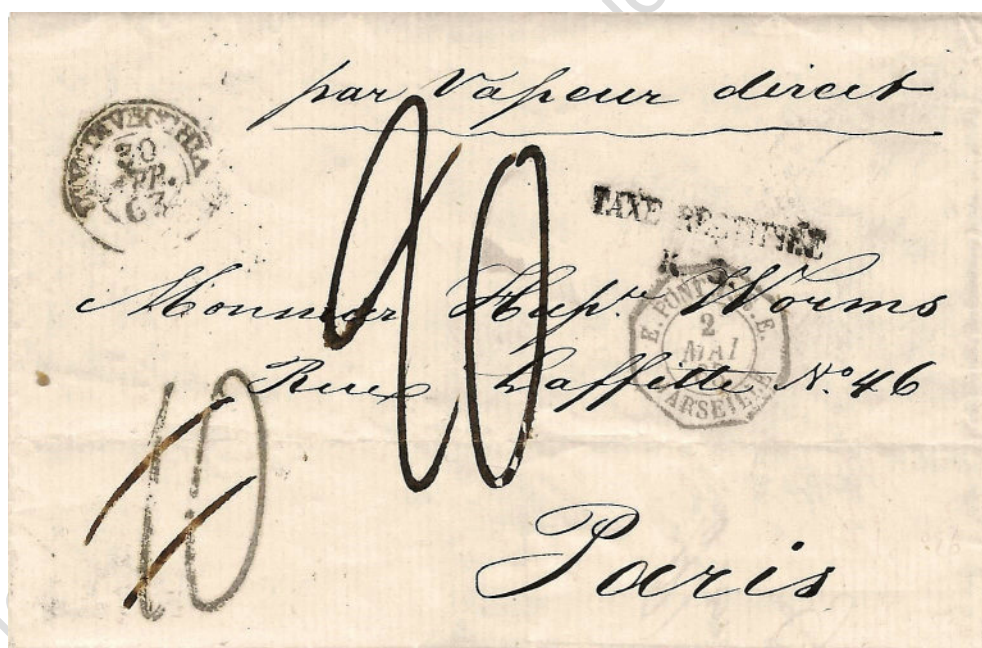 par Vapeur direct
CIVITAVECCHIA
30
APR.
63
20
TAXE RECTIFIÉE
Monsieur Hypte Worms
E. PONT. E.
2
MAI
MARSEILLE
Rue Laffitte No 46
10
Paris